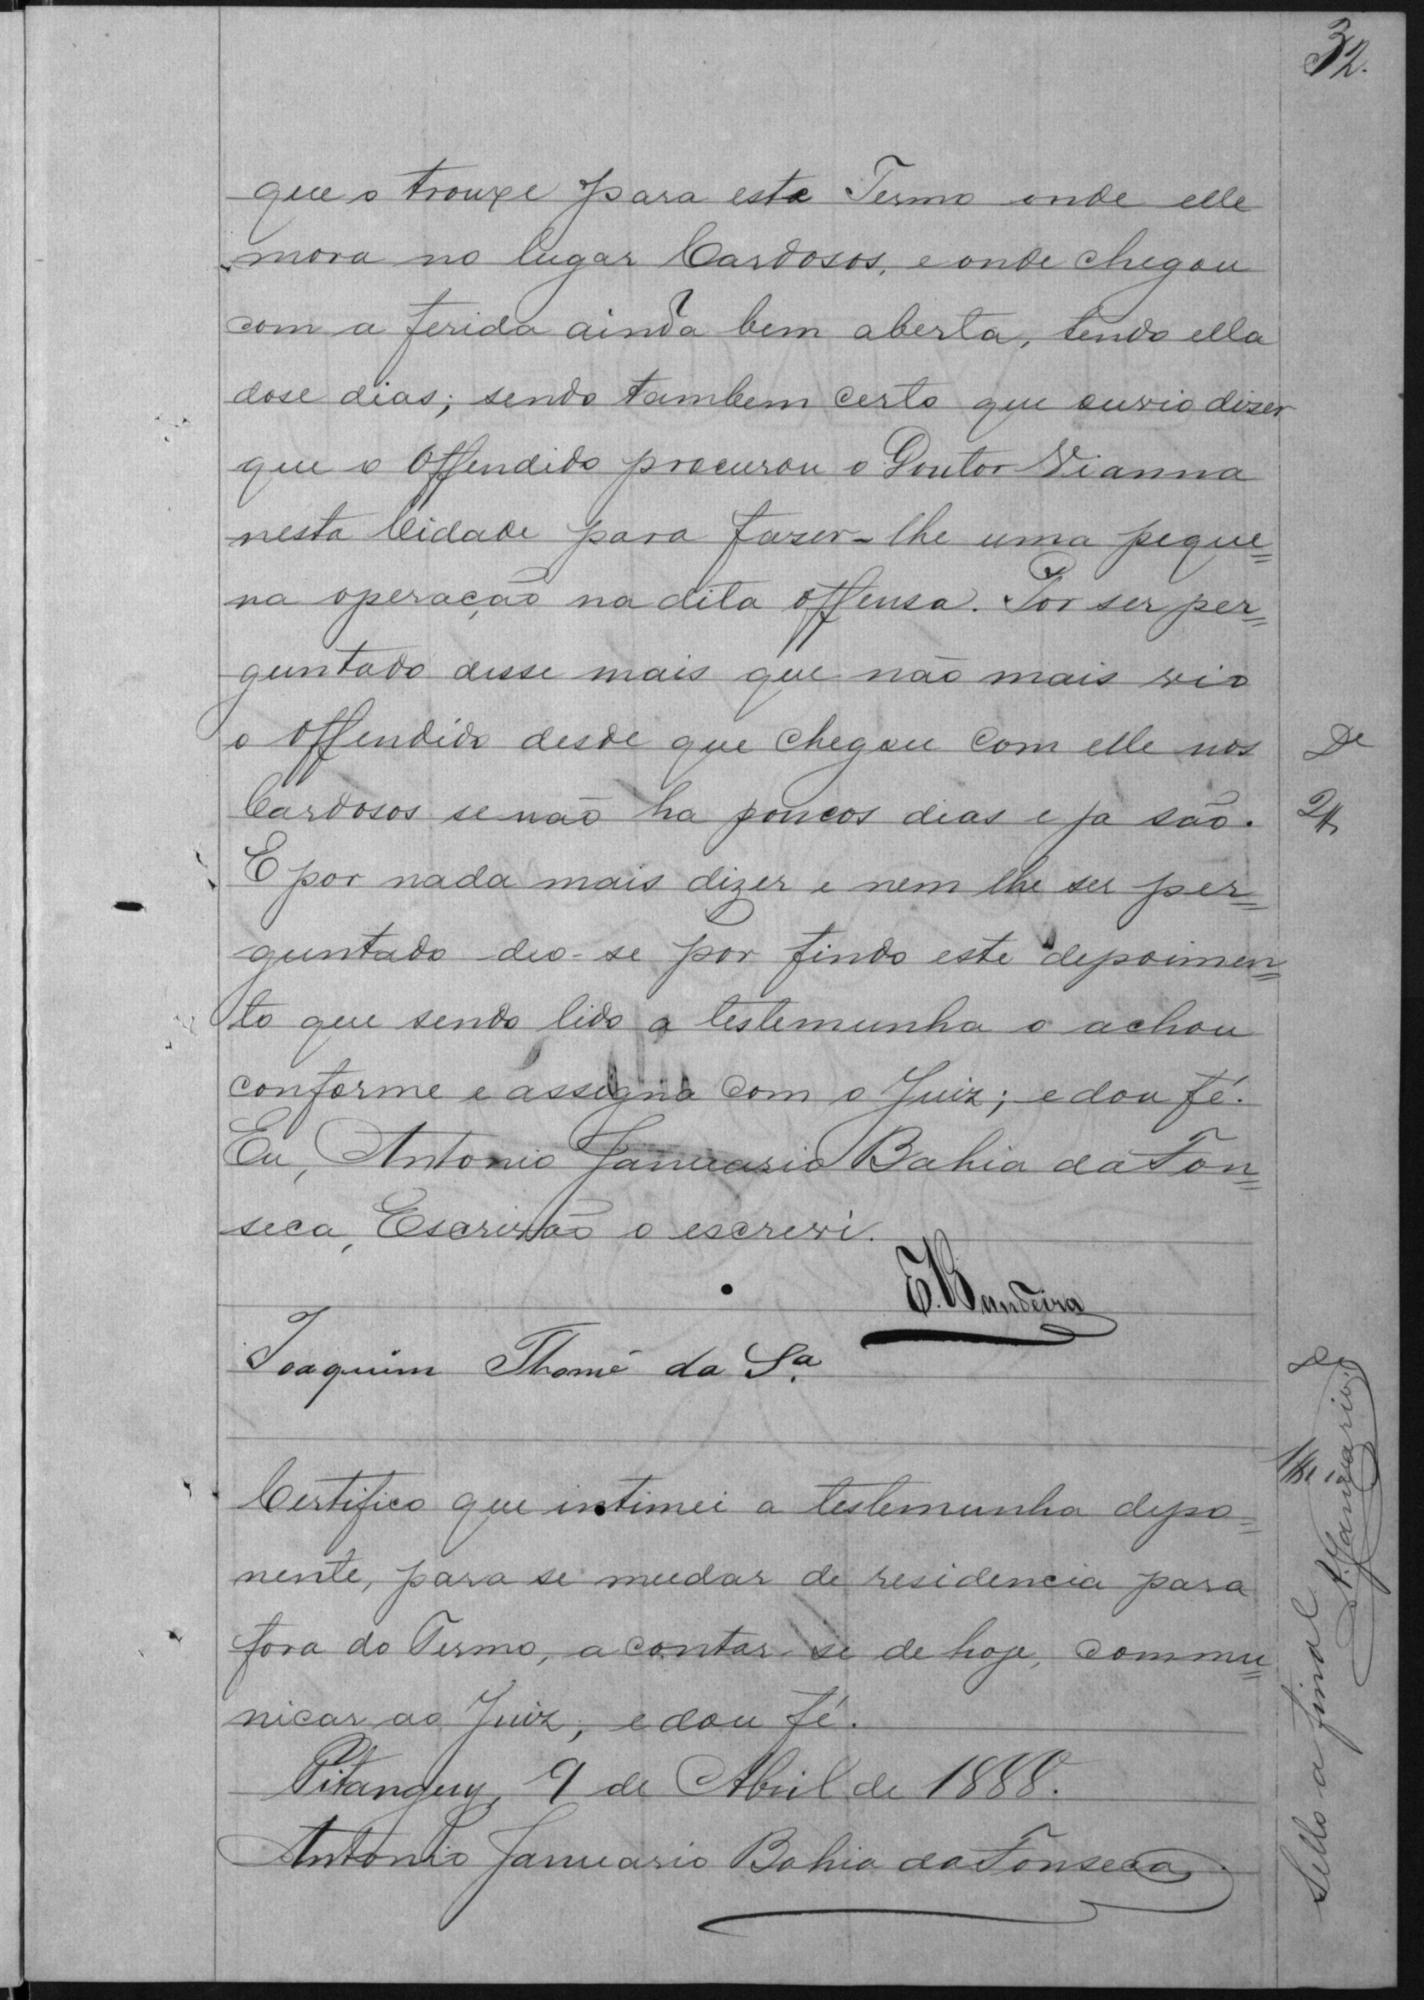 32.
que o trouxe para este Termo onde elle
mora no lugar Cardosos, e onde chegou
com a ferida ainda bem aberta, tendo ella
dose dias; sendo tambem certo que ouvio dizer
que o Offendido procurou o Doutor Vianna
nesta Cidade para fazer-lhe uma peque=
na operação na dita offensa. Por ser per=
guntado disse mais que não mais vio
o Offendido desde que chegou com elle nos
Cardosos se não ha poucos dias e ja são.
E por nada mais dizer e nem lhe ser per=
guntado deo-se por findo este depoimen=
to que sendo lido a testemunha o achou
conforme e assigna com o Juiz; e dou fé.
Eu, Antonio Januario Bahia da Fon=
seca, Escrivão o escrevi.
E. Bandeira
Joaquim Thomé da S.ª
Certifico que intimei a testemunha depo=
nente, para se mudar de residencia para
fora do Termo, a contar-se de hoje, commu=
nicar ao Juiz; e dou fé.
Pitanguy, 9 de Abril de 1888.
Antonio Januario Bahia da Fonseca
Sello a final
A. Januario